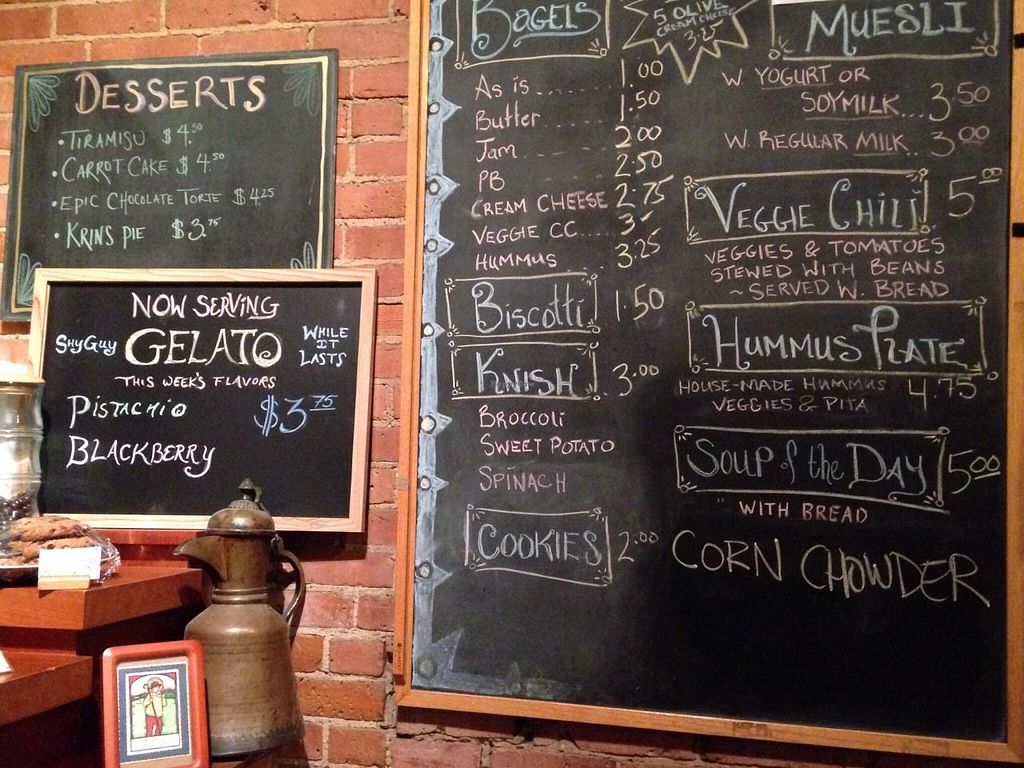 DESSERTS
• TIRAMISU $4.50
• CARROT CAKE $4.50
• EPIC CHOCOLATE TORTE $4.25
• KRINS PIE $3.75
NOW SERVING
SHYGUY GELATO WHILE IT LASTS
THIS WEEK'S FLAVORS
PISTACHIO $3.75
BLACKBERRY
BAGELS
5 OLIVE
CREAM CHEESE
3.25
As is 1.00
Butter 1.50
Jam 2.00
PB 2.50
CREAM CHEESE 2.75
VEGGIE CC 3.
HUMMUS 3.25
Biscotti 1.50
KNISH 3.00
BROCCOLI
SWEET POTATO
SPINACH
COOKIES 2.00
MUESLI
W YOGURT OR
SOYMILK... 3.50
W. REGULAR MILK.. 3.00
VEGGIE CHILI 5.00
VEGGIES & TOMATOES
STEWED WITH BEANS
~ SERVED W. BREAD
HUMMUS PLATE
HOUSE-MADE HUMMUS 4.75
VEGGIES & PITA
SOUP of the DAY 5.00
WITH BREAD
CORN CHOWDER